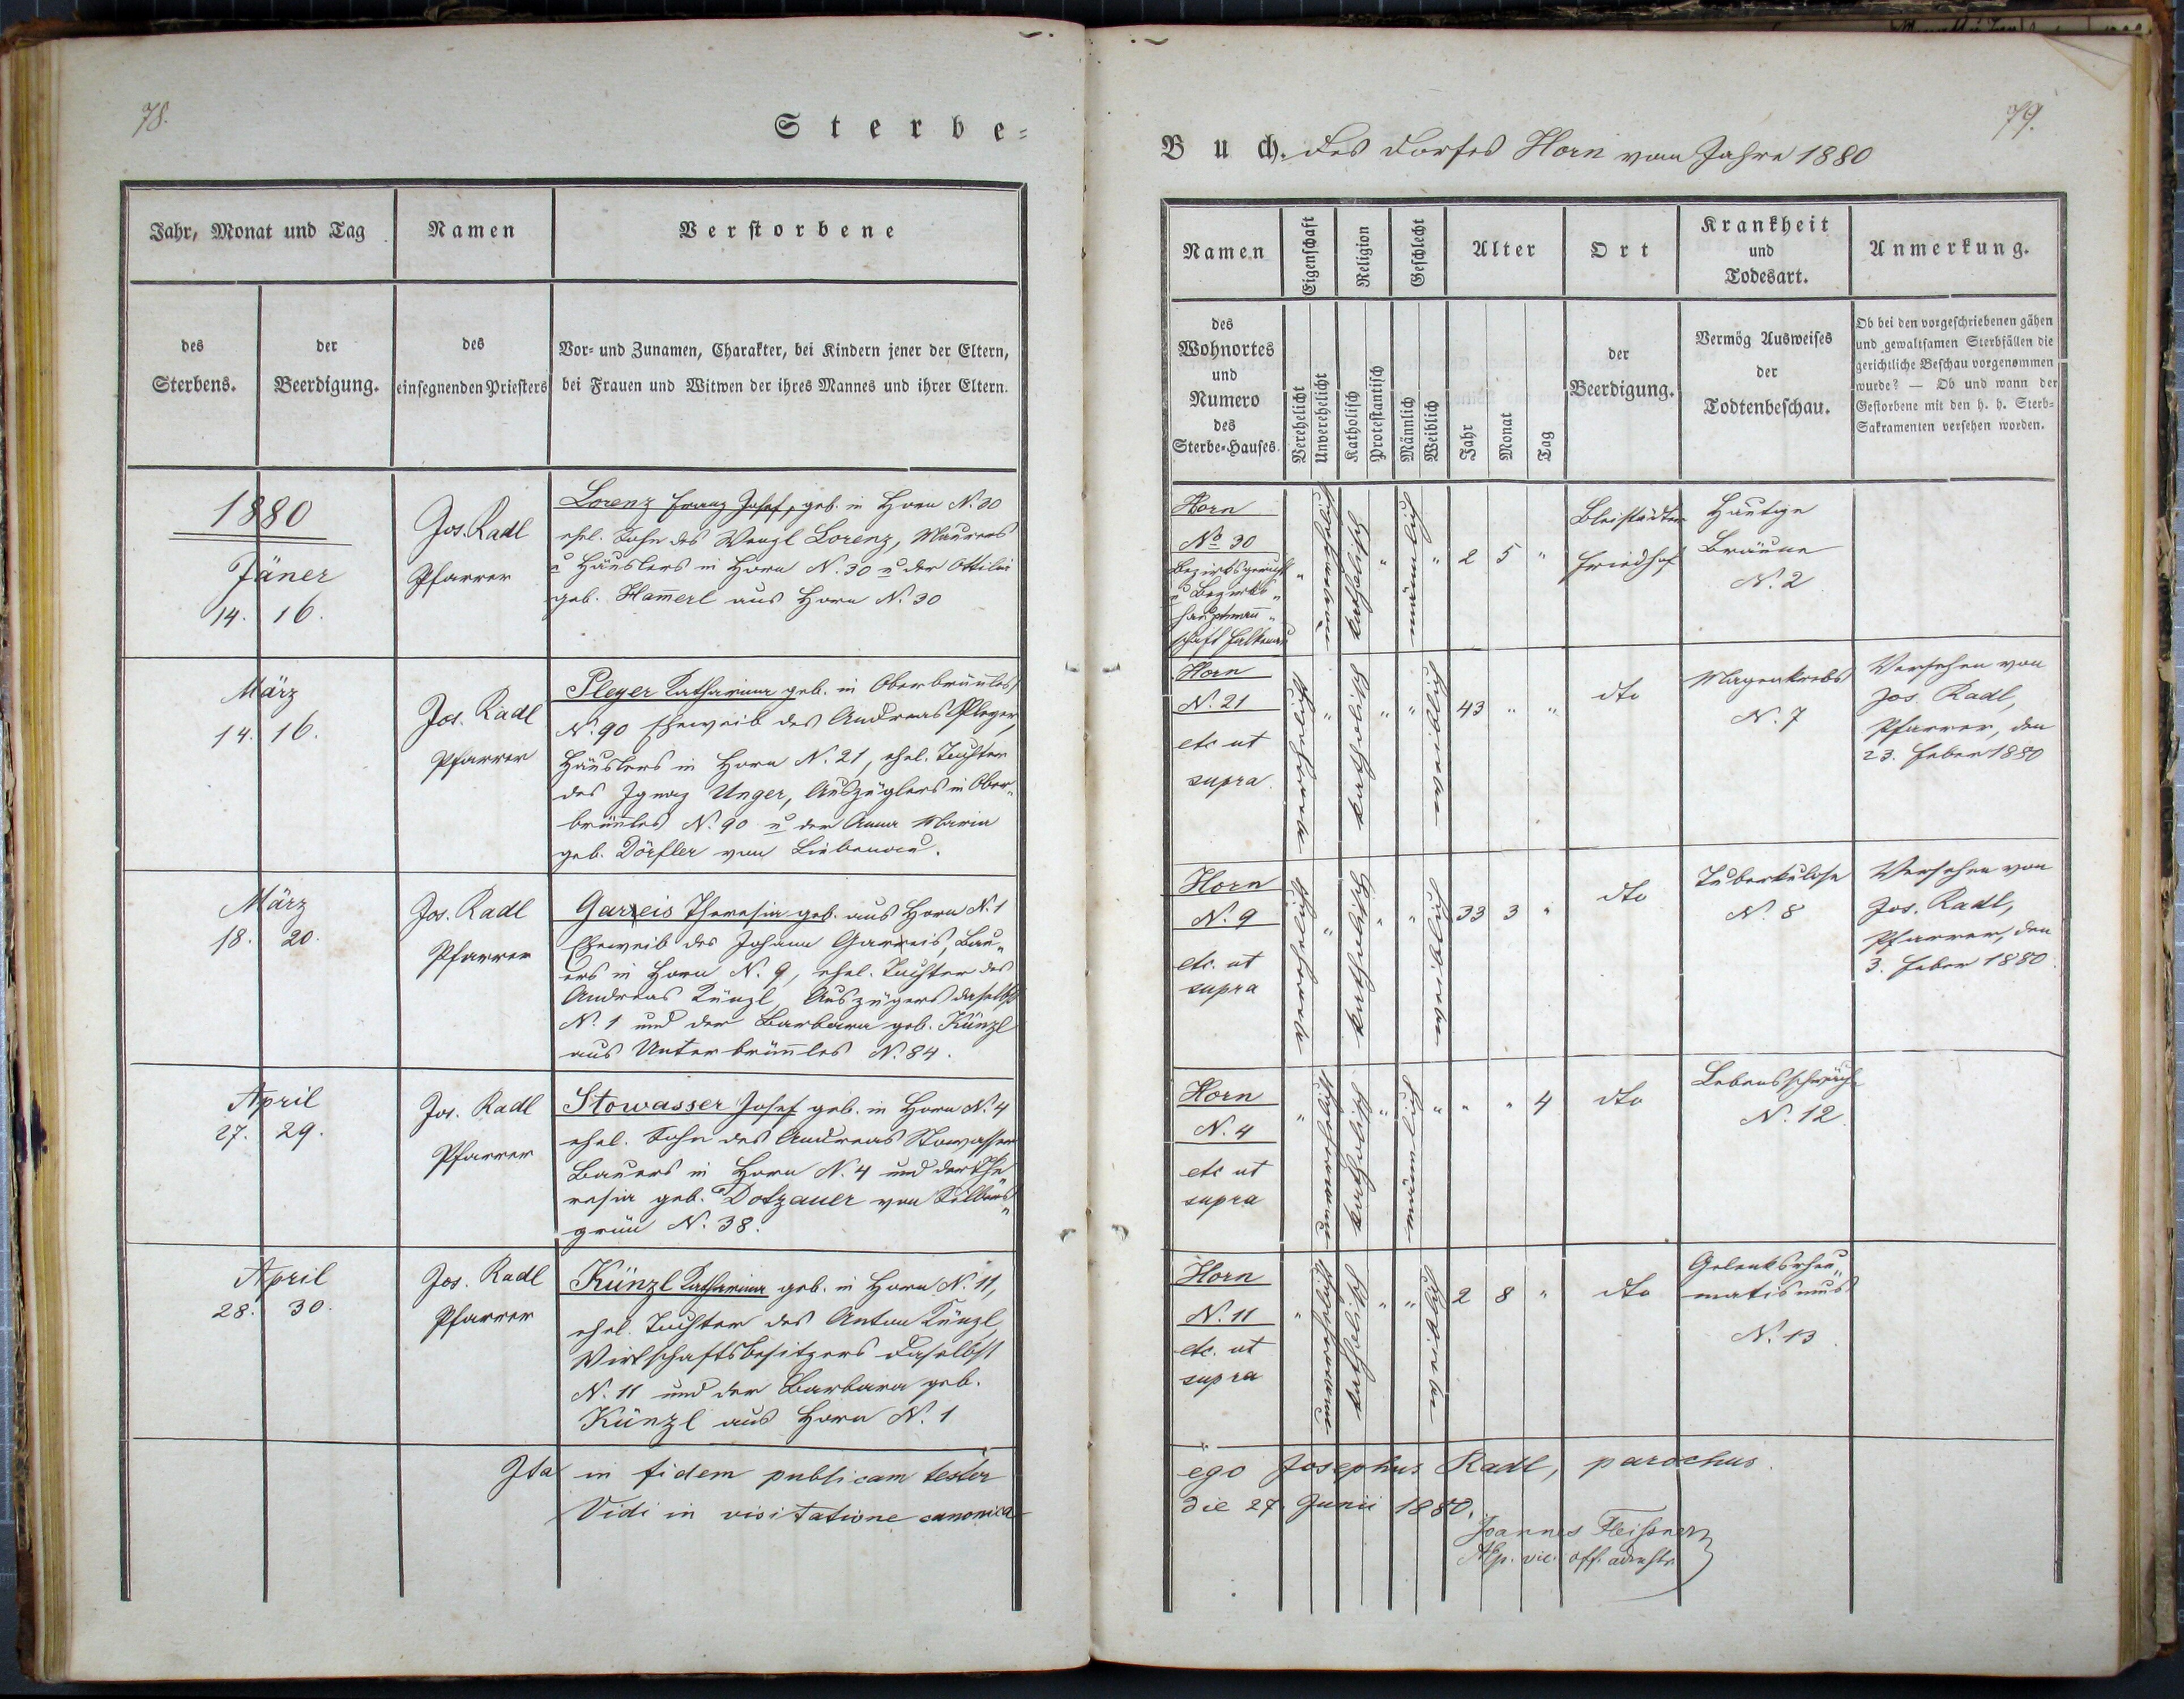 78.
Sterbe-
Jahr, Monat und Tag
Namen
Verstorbene
des
Sterbens.
der
Beerdigung.
des
einsegnenden Priesters
Vor- und Zunamen, Charakter, bei Kindern jener der Eltern,
bei Frauen und Witwen der ihres Mannes und ihrer Eltern.
1880
Jäner
14. 16.
Jos. Radl
Pfarrer
Lorenz Franz Josef, geb. in Horn N. 30
ehel. Sohn des Wenzl Lorenz, Maurers
u Häuslers in Horn N. 30 u der Ottilie
geb. Ham̄erl aus Horn N. 30
März
14. 16.
Jos. Radl
Pfarrer
Pleyer Katharina geb. in Oberbrün̄les
N. 90 Eheweib des Andreas Pleyer,
Häuslers in Horn N. 21, ehel. Tochter
des Ignaz Unger, Auszüglers in Ober„
brün̄les N. 90 u der Anna Maria
geb. Dörfler von Liebenau.
März
18. 20.
Jos. Radl
Pfarrer
Garreis Theresia geb. aus Horn N. 1
Eheweib des Johann Garreis, Bau„
ers in Horn N. 9, ehel. Tochter des
Andreas Künzl, Auszügers daselbst
N. 1 und der Barbara geb. Künzl
aus Unterbrün̄les N. 84.
April
27. 29.
Jos. Radl
Pfarrer
Stowasser Josef geb. in Horn N. 4
ehel. Sohn des Andreas Stowasser
Bauers in Horn N. 4 und der The„
resia geb. Dotzauer von Silbers„
grün N. 38.
April
28. 30.
Jos. Radl
Pfarrer
Künzl Katharina geb. in Horn N. 11,
ehel. Tochter des Anton Künzl,
Wirtschaftsbesitzers daselbst
N. 11 und der Barbara geb.
Künzl aus Horn N. 1
Ita in fidem publicam testor
Vidi in visitatione canonica
79.
Buch. des Dorfes Horn vom Jahre 1880
Namen
Eigenschaft
Religion
Geschlecht
Alter
Ort
Krankheit
und
Todesart.
Anmerkung.
des
Wohnortes
und
Numero
des
Sterbe-Hauses.
Verehelicht
Unverehelicht
Katholisch
Protestantisch
Männlich
Weiblich
Jahr
Monat
Tag
der
Beerdigung.
Vermög Ausweises
der
Todtenbeschau.
Ob bei den vorgeschriebenen gähen
und gewaltsamen Sterbfällen die
gerichtliche Beschau vorgenommen
wurde? — Ob und wann der
Gestorbene mit den h. h. Sterb-
Sakramenten versehen worden.
Horn
No 30
Bezirksgericht
u Bezirks„
hauptman̄„
schaft Falkenau
"
unverehelicht
katholisch
"
männlich
"
2 5 "
Bleistädter
Friedhof
Häutige
Bräune
N. 2
Horn
N. 21
etc ut
supra.
verehelicht
"
katholisch
"
"
weiblich
43 " "
dto
Magenkrebs
N. 7
Versehen von
Jos. Radl,
Pfarrer, den
23. Feber 1880
Horn
N. 9
etc. ut
supra
verehelicht
"
katholisch
"
"
weiblich
33 3 "
dto
Tuberkulose
N. 8
Versehen von
Jos. Radl,
Pfarrer, den
3. Feber 1880.
Horn
N. 4
etc ut
supra
"
unverehelicht
katholisch
"
männlich
"
" " 4
dto
Lebensschwäche
N. 12.
Horn
N. 11
etc. ut
supra
"
unverehelicht
katholisch
"
"
weiblich
2 8 "
dto
Gelenksrheu„
matismus
N. 13.
ego Josephus Radl, parochus.
die 27. Junii 1880.
Joannes Fleißner